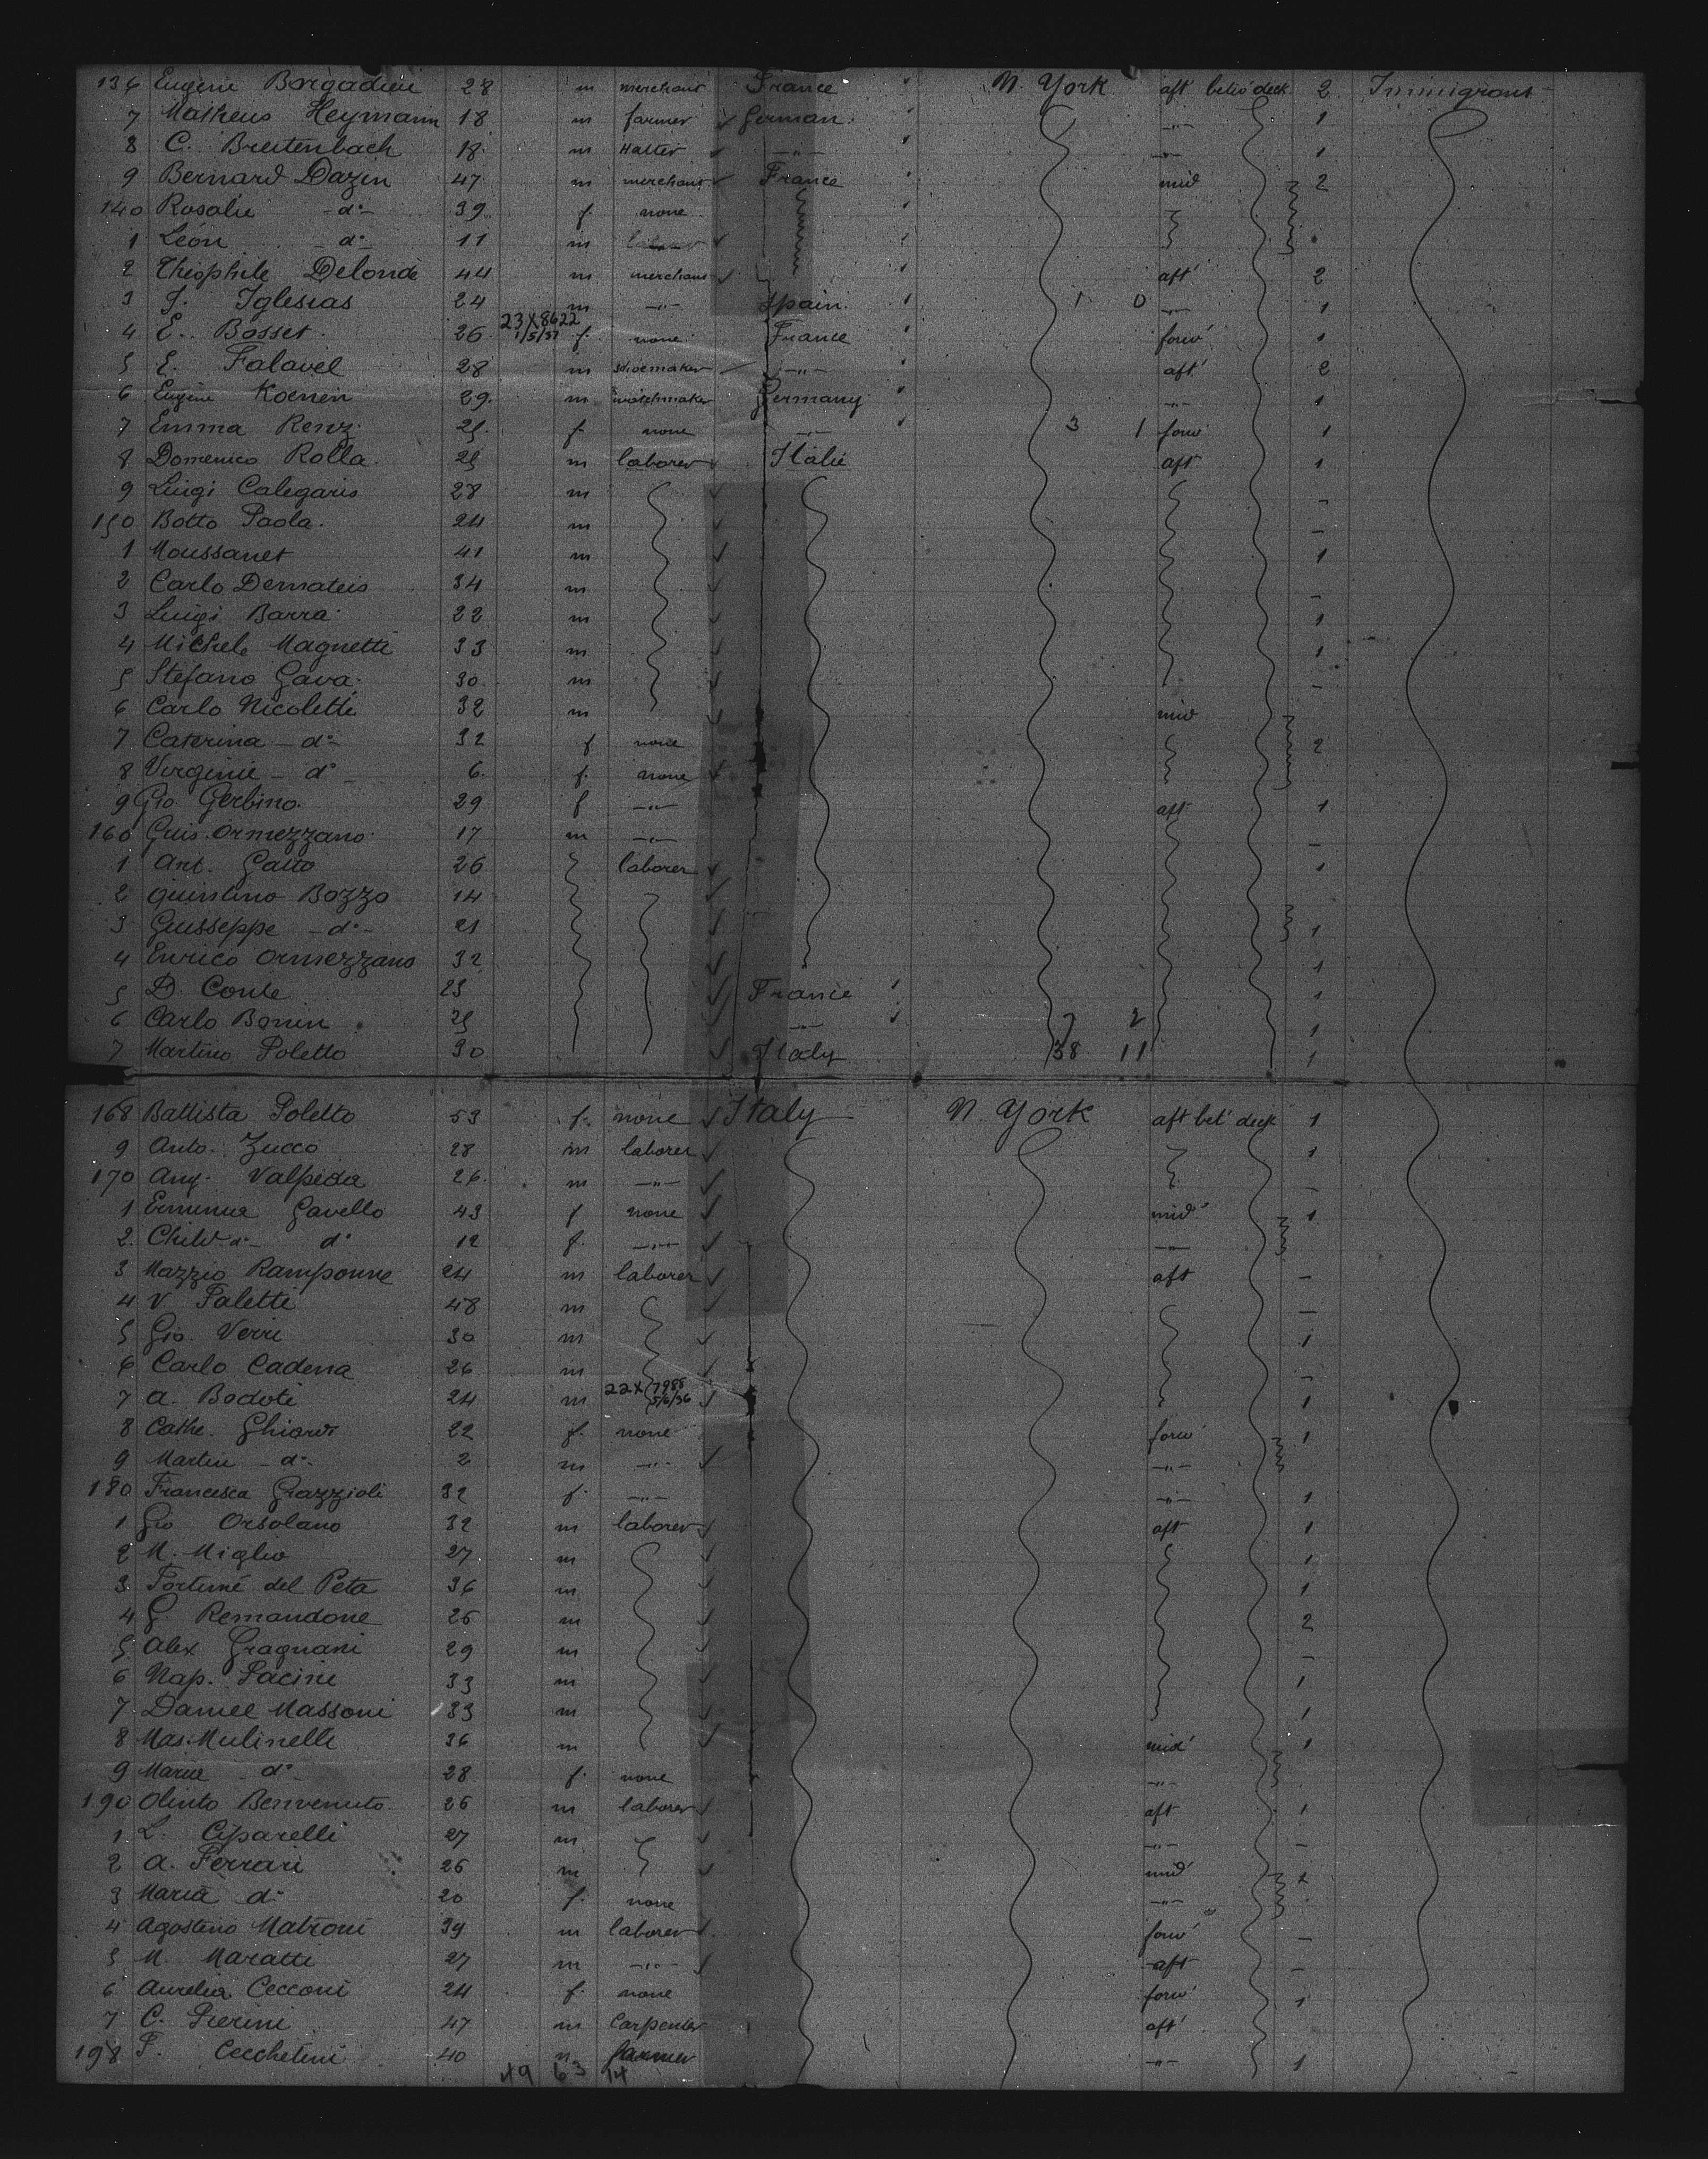 136 Eugène Brigadieu 28 m merchant France N. York aft betw deck 2 Immigrant
7 Matheus Heymann 18 m farmer German. -"- 1
8 C. Breitenbach 18 m Hatter -"- -"- 1
9 Bernard Dazin 47 m merchant France mid 2
140 Rosalie -do- 39 f. none
1 Léon -do- 11 m
2 Théophile Delonde 44 m merchant aft 2
3 J. Iglesias 24 m -"- Spain 1 0 -"- 1
23X8622
4 E. Bosset 26 1/5/37 f. none France forw 1
5 E. Falavel 28 m shoemaker -"- aft 2
6 Eugène Koenen 29. m watchmaker Germany -"- 1
7 Emma Renz 25. f. none -"- 3 1 forw 1
8 Domenico Rolla 25 m laborer Italie aft 1
9 Luigi Calegaris 28 m -
150 Botto Paola. 24 m -
1 Moussanet 41 m 1
2 Carlo Demateis 34 m -
3 Luigi Barra 22 m 1
4 Michele Magnetti 33 m 1
5 Stefano Gava. 30. m -
6 Carlo Nicoletti 32 m mid
7 Caterina - do- 32 f none 2
8 Verginie - do - 6. f. none
9 Gio. Gerbino. 29 f -"- aft 1
160 Guis. Ormezzano 17 m -"- -
1 Ant. Gatto 26 laborer 1
2 Quintino Bozzo 14
3 Guisseppe -do- 21 1
4 Enrico Ormezzano 32 1
5 D. Conte 23 France 1
6 Carlo Bonin 25 -"- 7 2 1
7 Martino Poletto 30 Italy 38 11 1
168 Battista Poletto 53 f. none Italy N. York aft bet deck 1
9 Anto. Zucco 28 m laborer 1
170 Ang. Valpeda 26. m -"- -
1 Erminia Gavello 43 f none mid 1
2. Child -do- do 12 f. -"- -"-
3 Mazzio Ramponne 24 m laborer aft -
4 V Paletti 48 m -
5 Gio. Verri 30 m 1
6 Carlo Cadena 26 m -
7 A. Bodoti 24 m 22X 7988 5/6/36 1
8 Cathe. Ghiardi 22 f. none forw 1
9 Martin -do- 2 m -"- -"-
180 Francesca Grazzioli 32 f. -"- -"- 1
1 Gio Orsolano 32 m laborer aft 1
2 M. Miglio 27 m 1
3 Fortuné del Peta 36 m 1
4 G. Remandone 26 m 2
5 Alex Gragnani 29 m -
6 Nap. Pacini 33 m 1
7 Daniel Massoni 33 m 1
8 Mas. Mulinelli 36 m mid 1
9 Maria - do - 28 f. none -"-
190 Olinto Benvenuto 26 m laborer aft 1
1 L. Ciparelli 27 m -"- -
2 A. Ferrari 26 m mid 1
3 Maria do- 20 f. none -"-
4 Agostino Matroni 39 m laborer forw -
5 M. Maratti 27 m -"- aft -
6 Aurelia Cecconi 24 f. none forw 1
7 C. Pierini 47 m Carpenter aft
198 F. Cecchetini 40 m farmer -"- 1
49 63 14